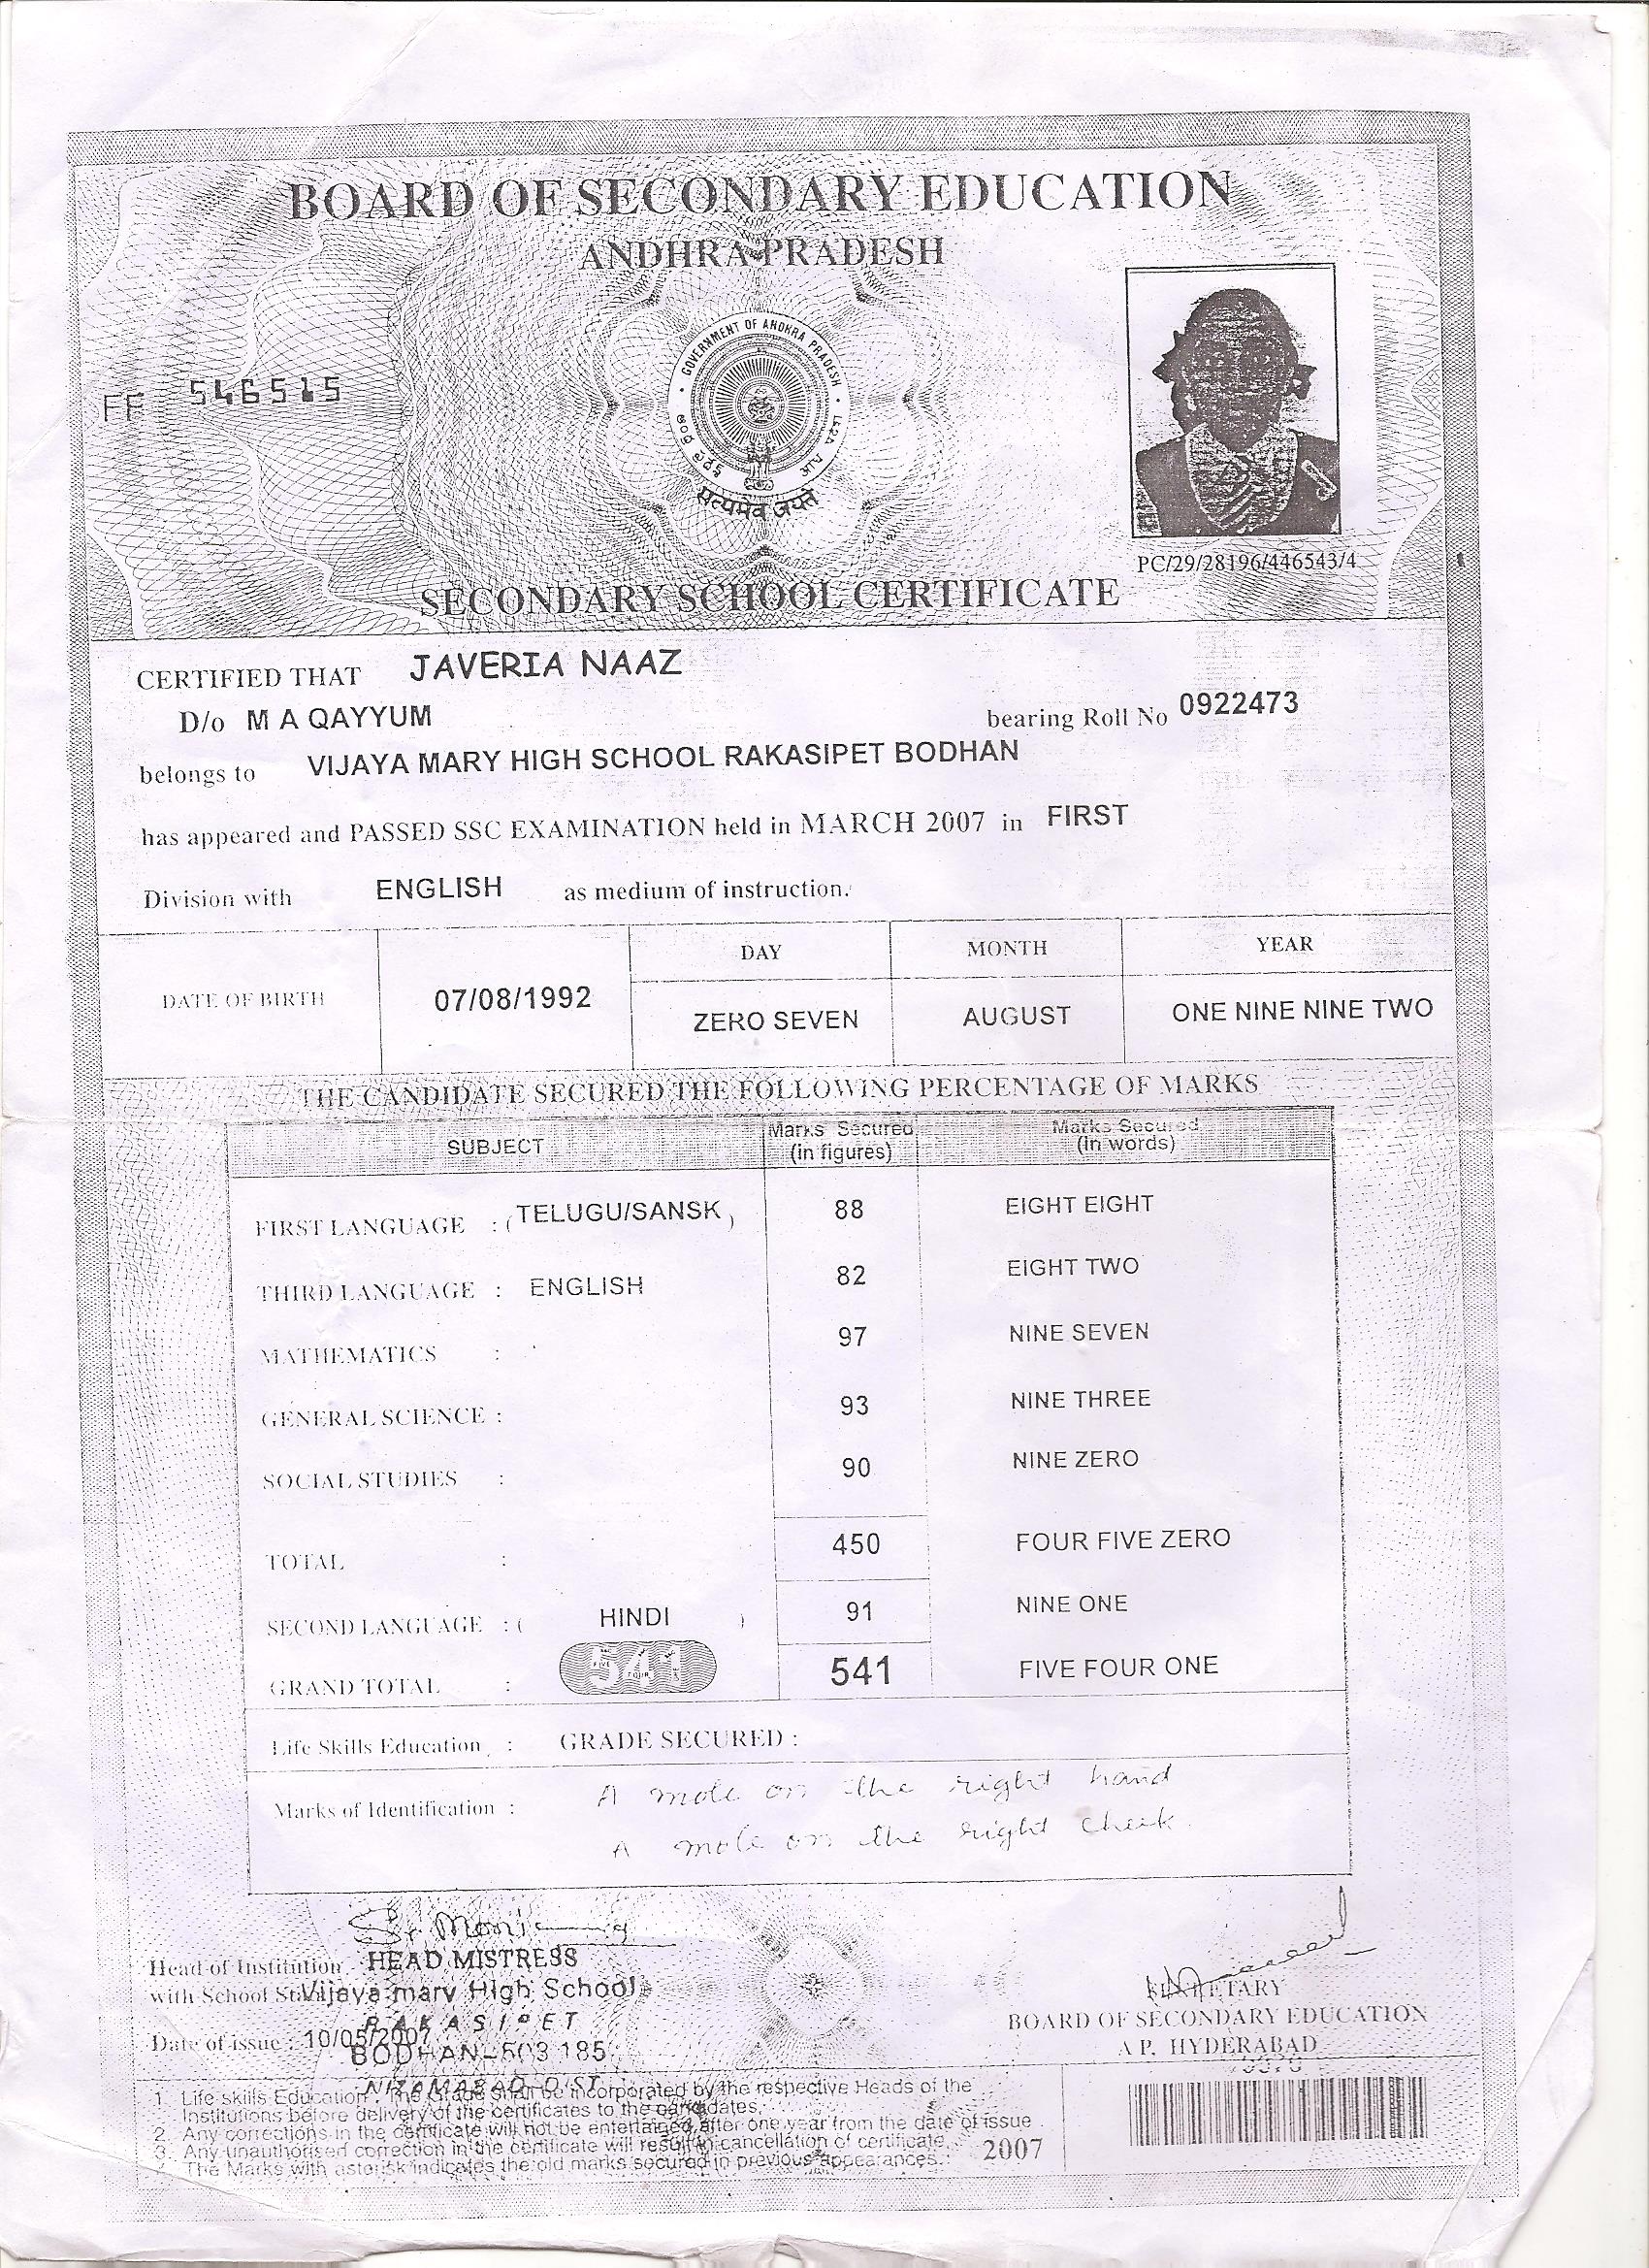 BOARD OF SECONDARY EDUCATION
ANDHRA PRADESH
GOVERNMENT OF ANDHRA PRADESH
सत्यमेव जयते
FF 546515
PC/29/28196/446543/4
SECONDARY SCHOOL CERTIFICATE
CERTIFIED THAT JAVERIA NAAZ
D/o M A QAYYUM bearing Roll No 0922473
belongs to VIJAYA MARY HIGH SCHOOL RAKASIPET BODHAN
has appeared and PASSED SSC EXAMINATION held in MARCH 2007 in FIRST
Division with ENGLISH as medium of instruction.
DAY MONTH YEAR
DATE OF BIRTH 07/08/1992 ZERO SEVEN AUGUST ONE NINE NINE TWO
THE CANDIDATE SECURED THE FOLLOWING PERCENTAGE OF MARKS
SUBJECT Marks Secured (in figures) Marks Secured (in words)
FIRST LANGUAGE : ( TELUGU/SANSK ) 88 EIGHT EIGHT
THIRD LANGUAGE : ENGLISH 82 EIGHT TWO
MATHEMATICS : 97 NINE SEVEN
GENERAL SCIENCE : 93 NINE THREE
SOCIAL STUDIES : 90 NINE ZERO
TOTAL : 450 FOUR FIVE ZERO
SECOND LANGUAGE : ( HINDI ) 91 NINE ONE
GRAND TOTAL : 541 541 FIVE FOUR ONE
Life Skills Education : GRADE SECURED :
Marks of Identification : A mole on the right hand
A mole on the right cheek.
Head of Institution HEAD MISTRESS
with School Vijaya mary High School
RAKASIPET
Date of issue : 10/05/2007
BODHAN-503 185
NIZAMABAD DIST
SECRETARY
BOARD OF SECONDARY EDUCATION
A P. HYDERABAD
1. Life skills Education : The Grade shall be incorporated by the respective Heads of the
Institutions before delivery of the certificates to the candidates.
2. Any corrections in the certificate will not be entertained after one year from the date of issue
3. Any unauthorised correction in the certificate will result in cancellation of certificate.
The Marks with asterisk indicates the old marks secured in previous appearances.
2007